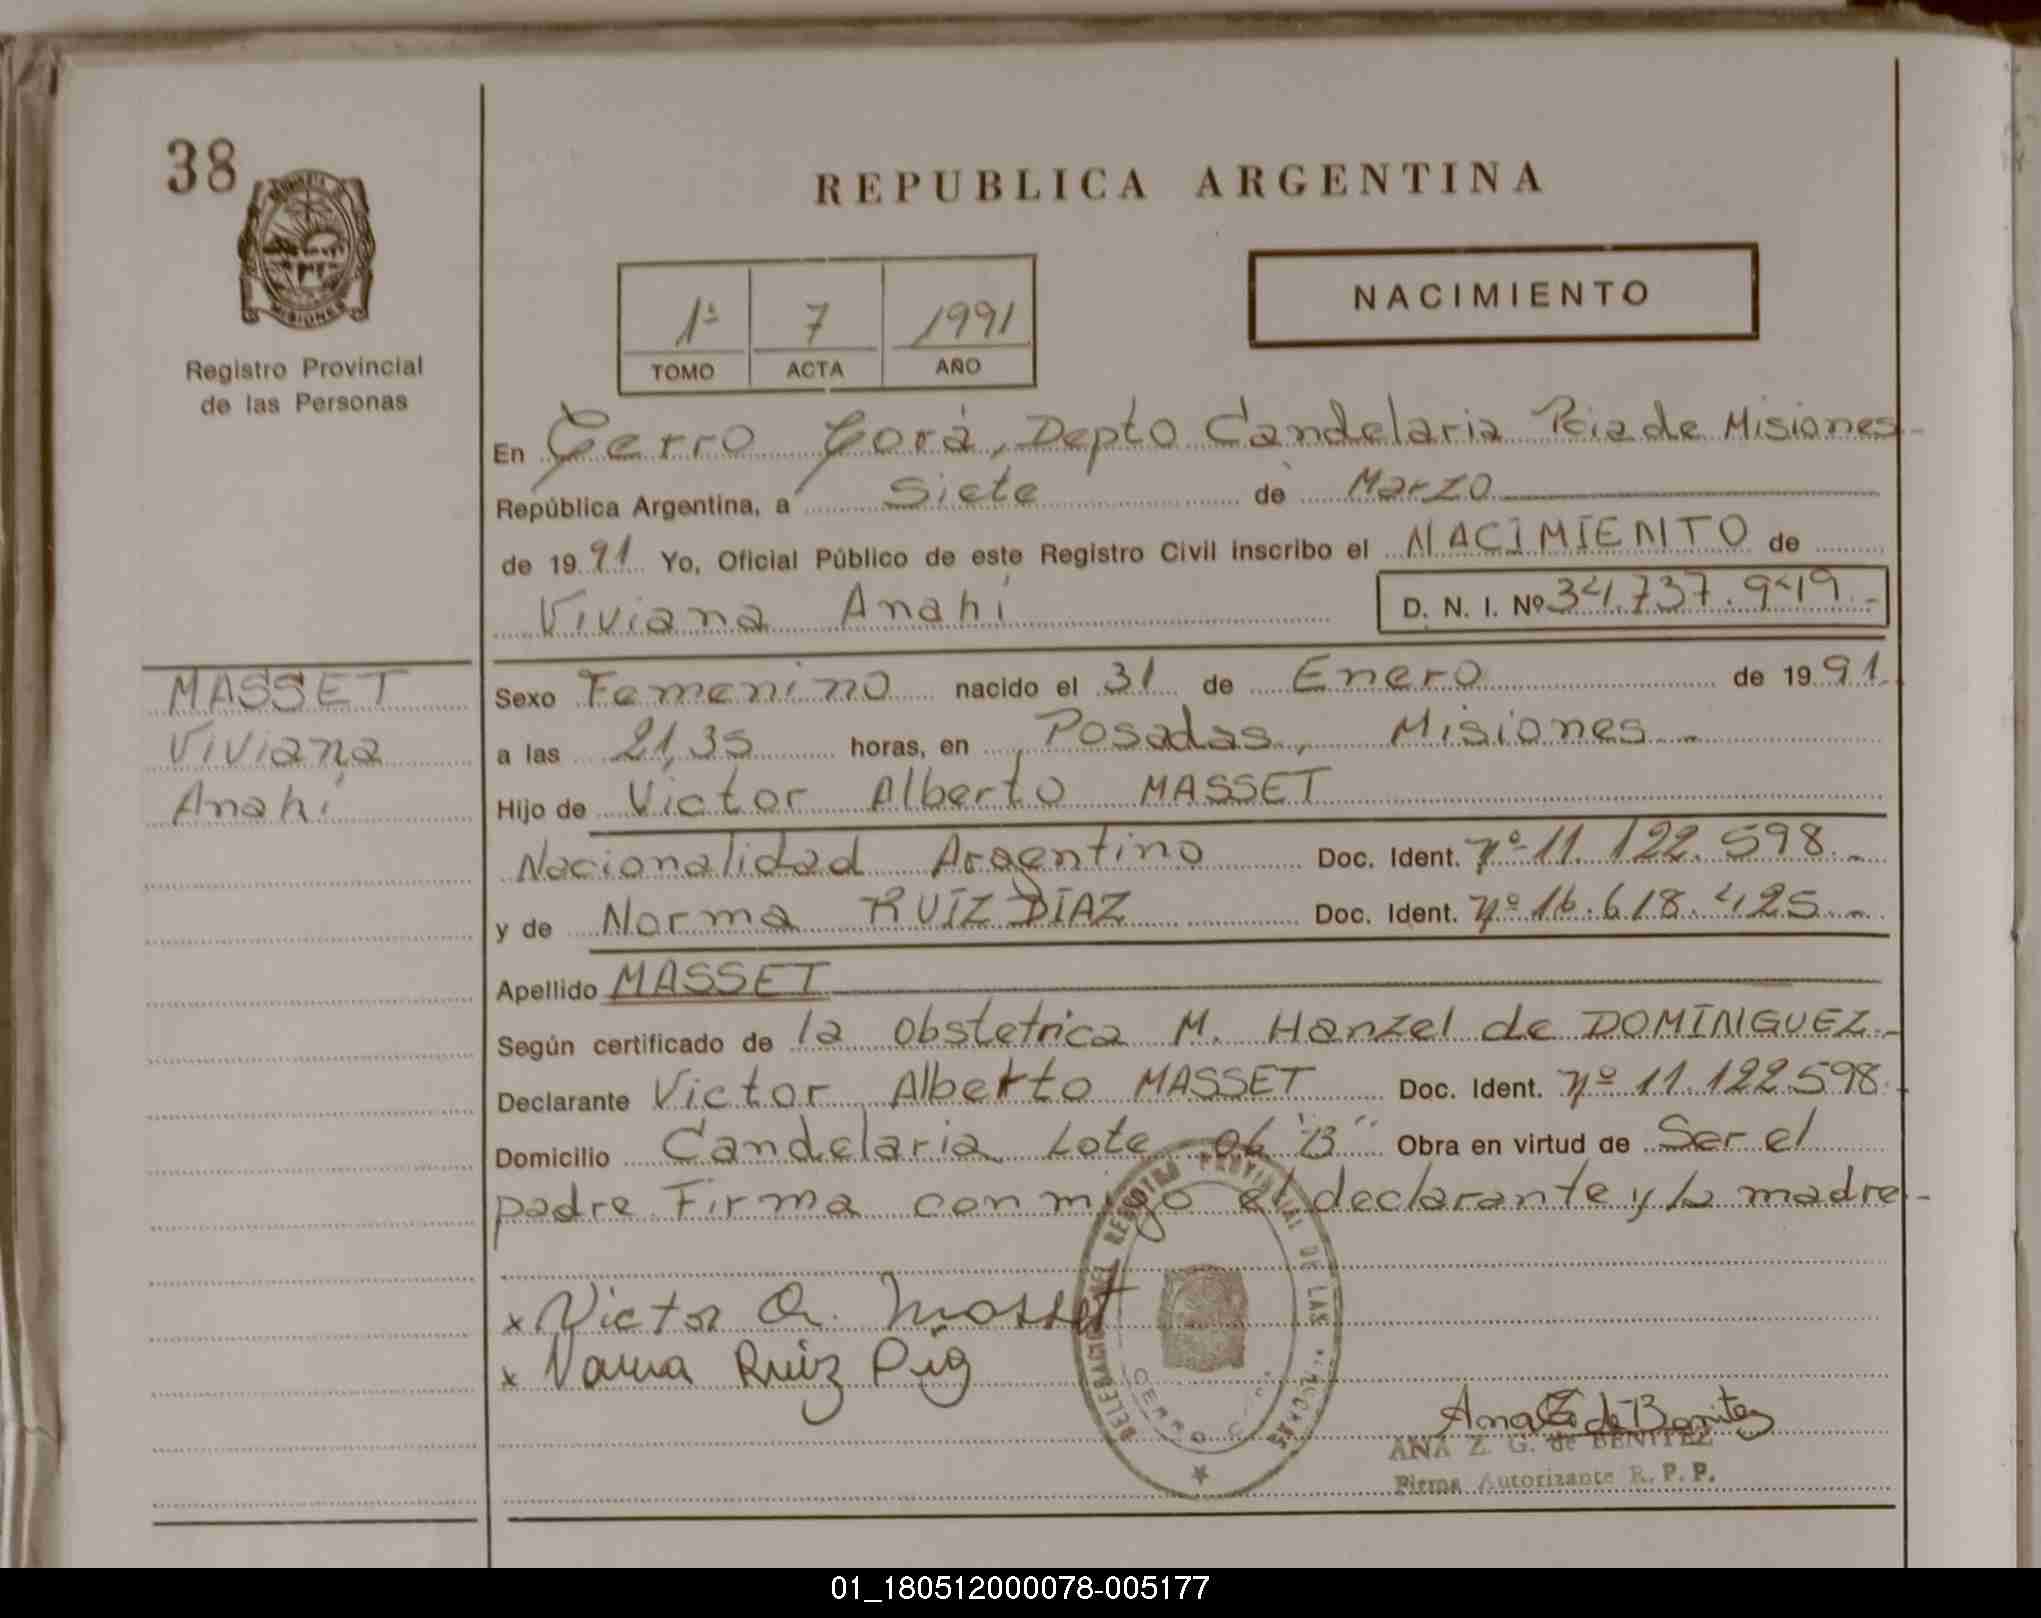 38
REPUBLICA ARGENTINA
NACIMIENTO
1ª 7 1991
TOMO ACTA AÑO
Registro Provincial
de las Personas
En Cerro Corá, Depto Candelaria Pcia de Misiones
República Argentina, a Siete de Marzo
de 1991 Yo, Oficial Público de este Registro Civil inscribo el NACIMIENTO de
Viviana Anahí D. N. I. Nº 34.737.949.-
MASSET
Viviana
Anahí
Sexo Femenino nacido el 31 de Enero de 1991
a las 21,35 horas, en Posadas, Misiones.-
Hijo de Victor Alberto MASSET
Nacionalidad Argentino Doc. Ident. nº 11.122.598.-
y de Norma RUÍZ DÍAZ Doc. Ident. nº 16.618.425.-
Apellido MASSET
Según certificado de la obstetrica M. Hanzel de DOMÍNGUEZ.-
Declarante Victor Alberto MASSET Doc. Ident. nº 11.122.598.
Domicilio Candelaria Lote 06 "B" Obra en virtud de Ser el
padre Firma conmigo el declarante y la madre.-
x Victor A. Masset
x Norma Ruiz Diaz
REGISTRO PROVINCIAL DE LAS
CERRO
Ana Z G de Benitez
ANA Z. G. de BENITEZ
Firma Autorizante R. P. P.
01_180512000078-005177